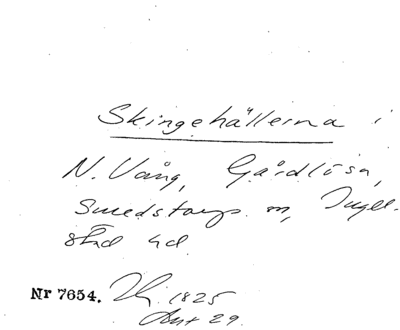 Skingehällerna i
N. Vång, Gårdlösa,
Smedstorps sn, Ingel-
stad hd
Nr 7654. 1825